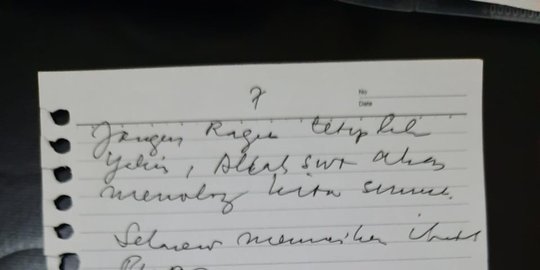 7
No
Date
Jangan Ragu tetaplah
Yakin, Allah swt akan
menolong kita semua.
Selamat menunaikan ibadah